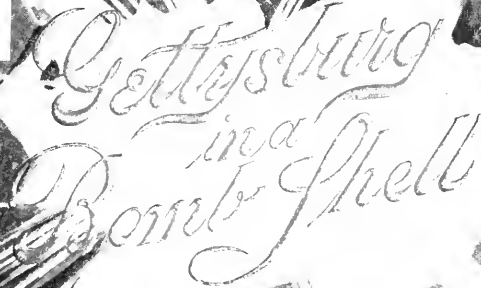 Gettysburg
in a
Bomb Shell